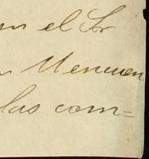 en el Sr
Mencuen
las com=